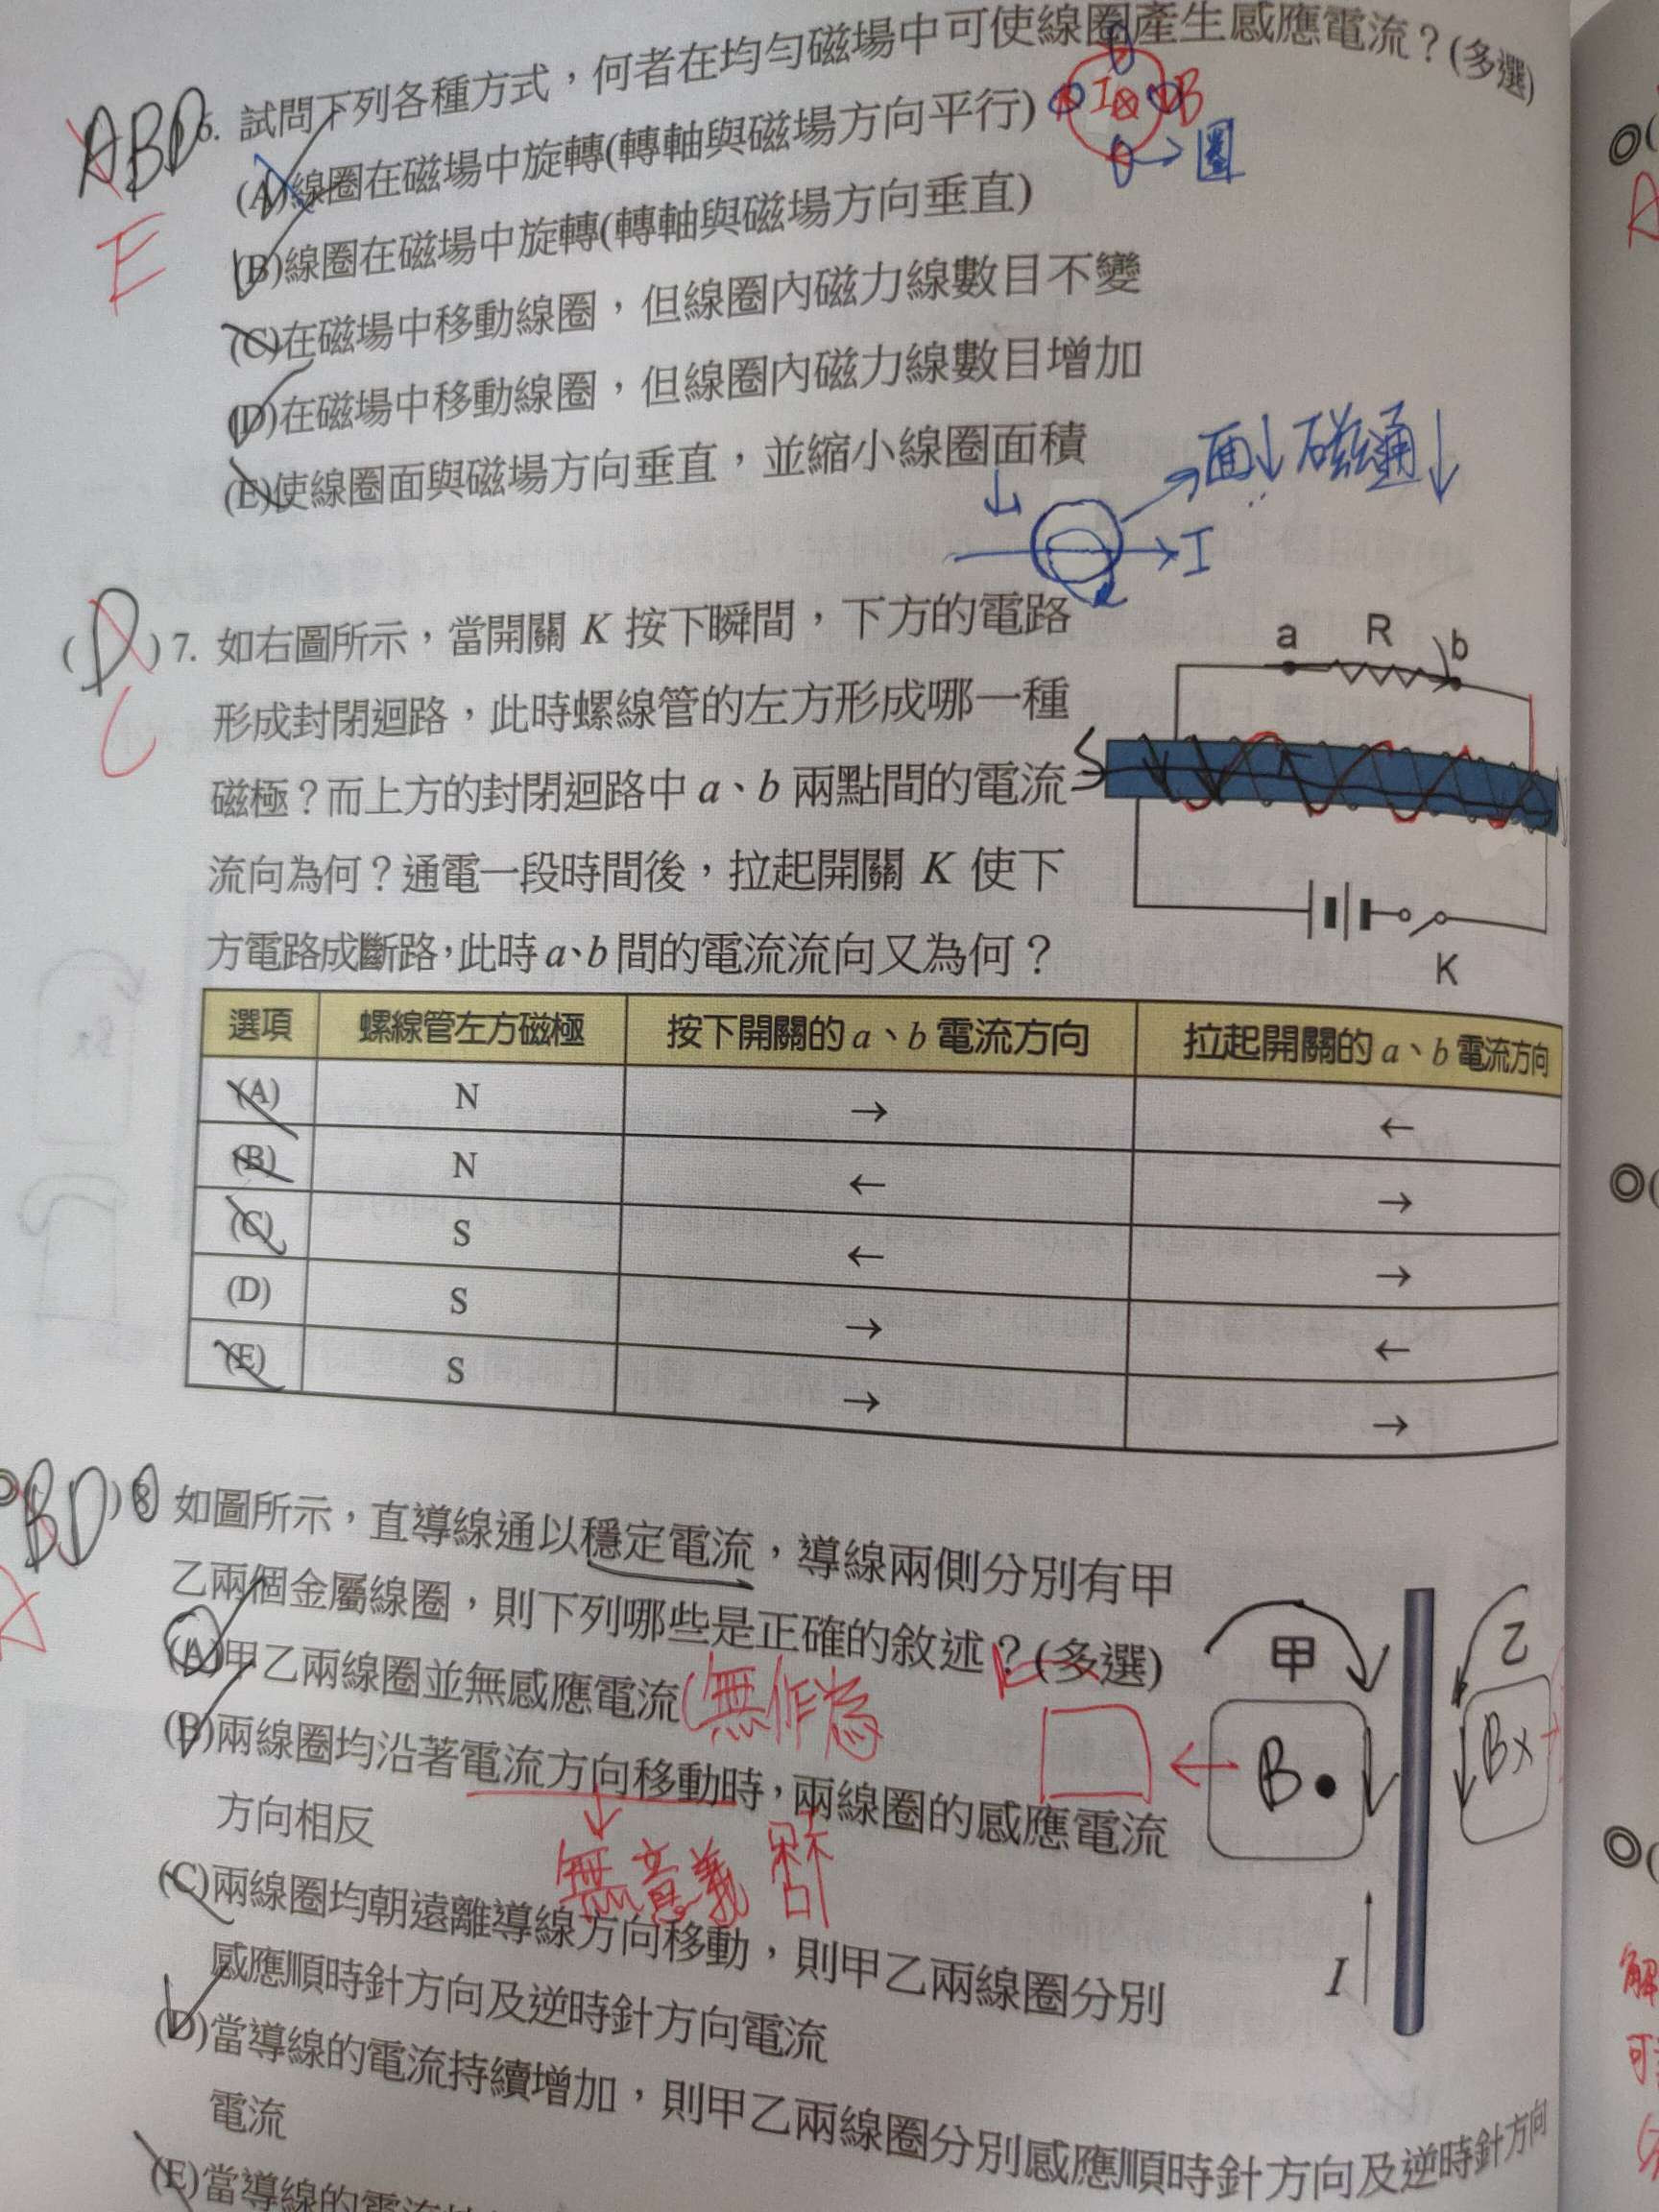 ABD
E
6. 試問下列各種方式，何者在均勻磁場中可使線圈產生感應電流？(多選)
(A)線圈在磁場中旋轉(轉軸與磁場方向平行)
I⊗ B
圈
(B)線圈在磁場中旋轉(轉軸與磁場方向垂直)
(C)在磁場中移動線圈，但線圈內磁力線數目不變
(D)在磁場中移動線圈，但線圈內磁力線數目增加
(E)使線圈面與磁場方向垂直，並縮小線圈面積
面↓磁通↓
I
(D)7. 如右圖所示，當開關 K 按下瞬間，下方的電路
C
形成封閉迴路，此時螺線管的左方形成哪一種
磁極？而上方的封閉迴路中 a、b 兩點間的電流
流向為何？通電一段時間後，拉起開關 K 使下
方電路成斷路，此時 a、b 間的電流流向又為何？
a R b
S
K
選項 螺線管左方磁極 按下開關的 a、b 電流方向 拉起開關的 a、b 電流方向
(A) N → ←
(B) N ← →
(C) S ← →
(D) S → ←
(E) S → →
◎(BD)8. 如圖所示，直導線通以穩定電流，導線兩側分別有甲
A
乙兩個金屬線圈，則下列哪些是正確的敘述？(多選)
(A)甲乙兩線圈並無感應電流(無作為
(B)兩線圈均沿著電流方向移動時，兩線圈的感應電流
方向相反
無意義
(C)兩線圈均朝遠離導線方向移動，則甲乙兩線圈分別
感應順時針方向及逆時針方向電流
(D)當導線的電流持續增加，則甲乙兩線圈分別感應順時針方向及逆時針方向
電流
(E)當導線的電流
甲
乙
B •
B×
I
◎(
A
◎(
◎(
解
可